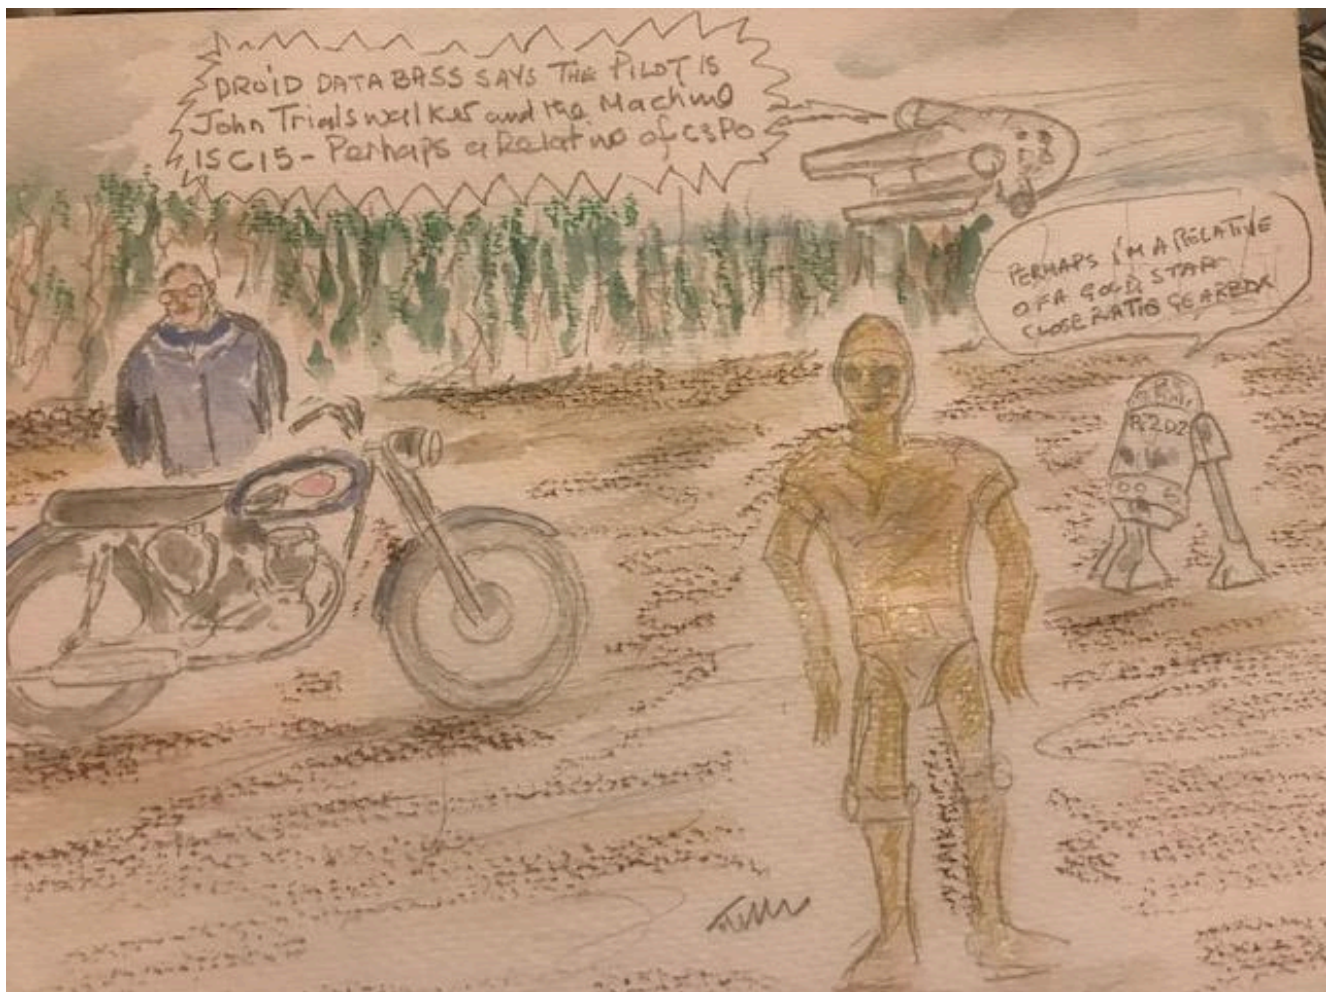 DROID DATA BASS SAYS THE PILOT IS
John Trialswalker and the Machine
IS C15 - Perhaps a Relative of C3PO
PERHAPS I'M A RELATIVE
OF A GOLD STAR
CLOSE RATIO GEARBOX
R2D2